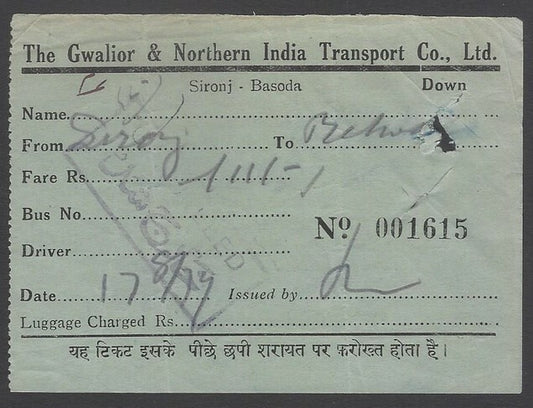 The Gwalior & Northern India Transport Co., Ltd.
Sironj - Basoda Down
Name
From Sironj To
Fare Rs.
Bus No.
Nº 001615
Driver
Date 17 Issued by
Luggage Charged Rs.
यह टिकट इसके पीछे छपी शरायत पर फ़रोख्त होता है।